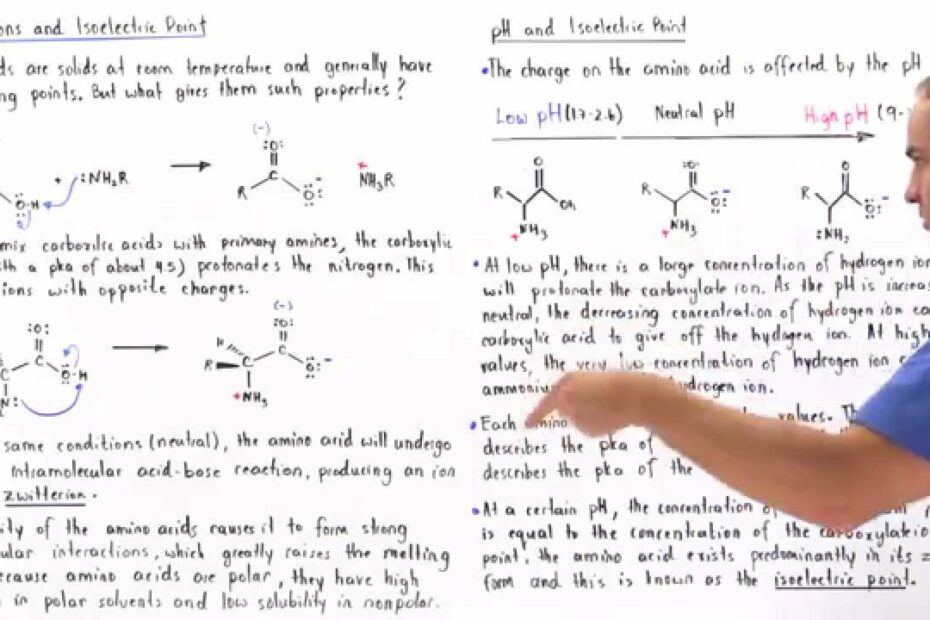 ons and Isoelectric Point
ds are solids at room temperature and generally have
ng points. But what gives them such properties?
(-)
:O:
C
R
Ö:
-
Ö-H
+ :NH₂R
+
NH₃R
mix carboxilic acids with primary amines, the carboxylic
th a pka of about 4.5) protonates the nitrogen. This
ions with opposite charges.
:O:
C
C
Ö-H
N:
(-)
:O:
H
R
C
C
Ö:
-
+NH₃
same conditions (neutral), the amino acid will undergo
intramolecular acid-base reaction, producing an ion
zwitterion.
ity of the amino acids causes it to form strong
ular interactions, which greatly raises the melting
ecause amino acids are polar, they have high
in polar solvents and low solubility in nonpolar.
pH and Isoelectric Point
•The charge on the amino acid is affected by the pH
Low pH (1.7-2.6) Neutral pH High pH (9-
O
R
OH
+NH₃
:O:
R
Ö:
-
+NH₃
O
R
Ö:-
:NH₂
•At low pH, there is a large concentration of hydrogen ion
will protonate the carboxylate ion. As the pH is increas
neutral, the decreasing concentration of hydrogen ion ca
carboxylic acid to give off the hydrogen ion. At high
values, the very low concentration of hydrogen ion c
ammoniu drogen ion.
•Each amino values. Th
describes the pka of
describes the pka of the
•At a certain pH, the concentration
is equal to the concentration of the carboxylate io
point, the amino acid exists predominantly in its z
form and this is known as the isoelectric point.